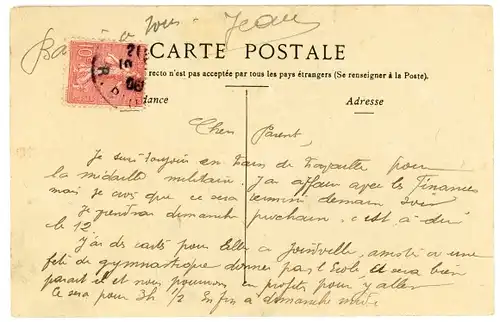 à tous Jean
CARTE POSTALE
recto n'est pas acceptée par tous les pays étrangers (Se renseigner à la Poste).
dance Adresse
Chers Parent,
Je suis toujours en train de travailler pour
la médaille militaire. J'ai affaire avec les Finances
mais je crois que ce sera terminé demain soir
Je viendrai dimanche prochain, c'est à dire
le 12.
J'ai des cartes pour aller à Joinville, assister à une
fête de gymnastique donnée par l'Ecole et sera bien
parait il et nous pourrons en profiter pour y aller
Ce sera pour 3h 1/2 Enfin à dimanche